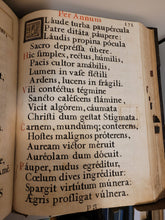 Per Annum
171
Laude turba paupercula
Patre ditáta páuperum,
Láudis propina pócula
Sacro deprẽssa úbere.
simplex, rectus, húmilis,
Pacis cultor amábilis,
Lumen in vasis
ardens,
Vili contéctus tégmine
Sancto caléscens flámine,
Vicit algórem, cáumata,
Christi dum gestat Stigmata.
Carnem, mundum; conterens,
Hostes malignos proterens,
Auream victor méruit
Auréolam dum dócuit.
Páuper, nudus egréditur
Cœlum dives ingréditur:
Spargit virtútum múnera:
Ægris profligat vúlnera.